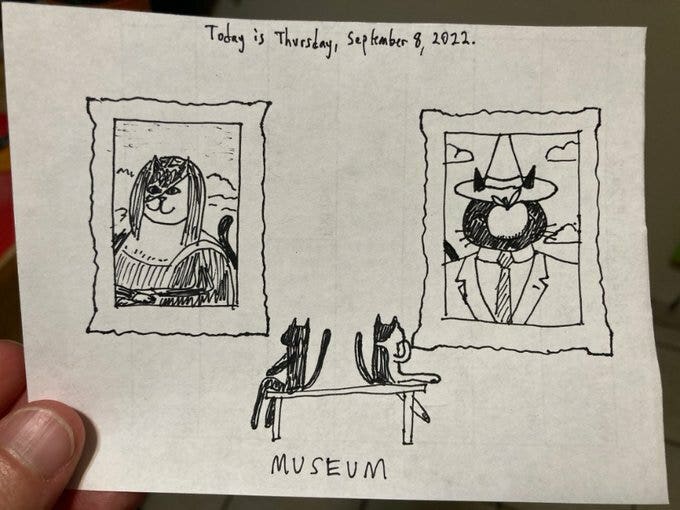 Today is Thursday, September 8, 2022.
MUSEUM